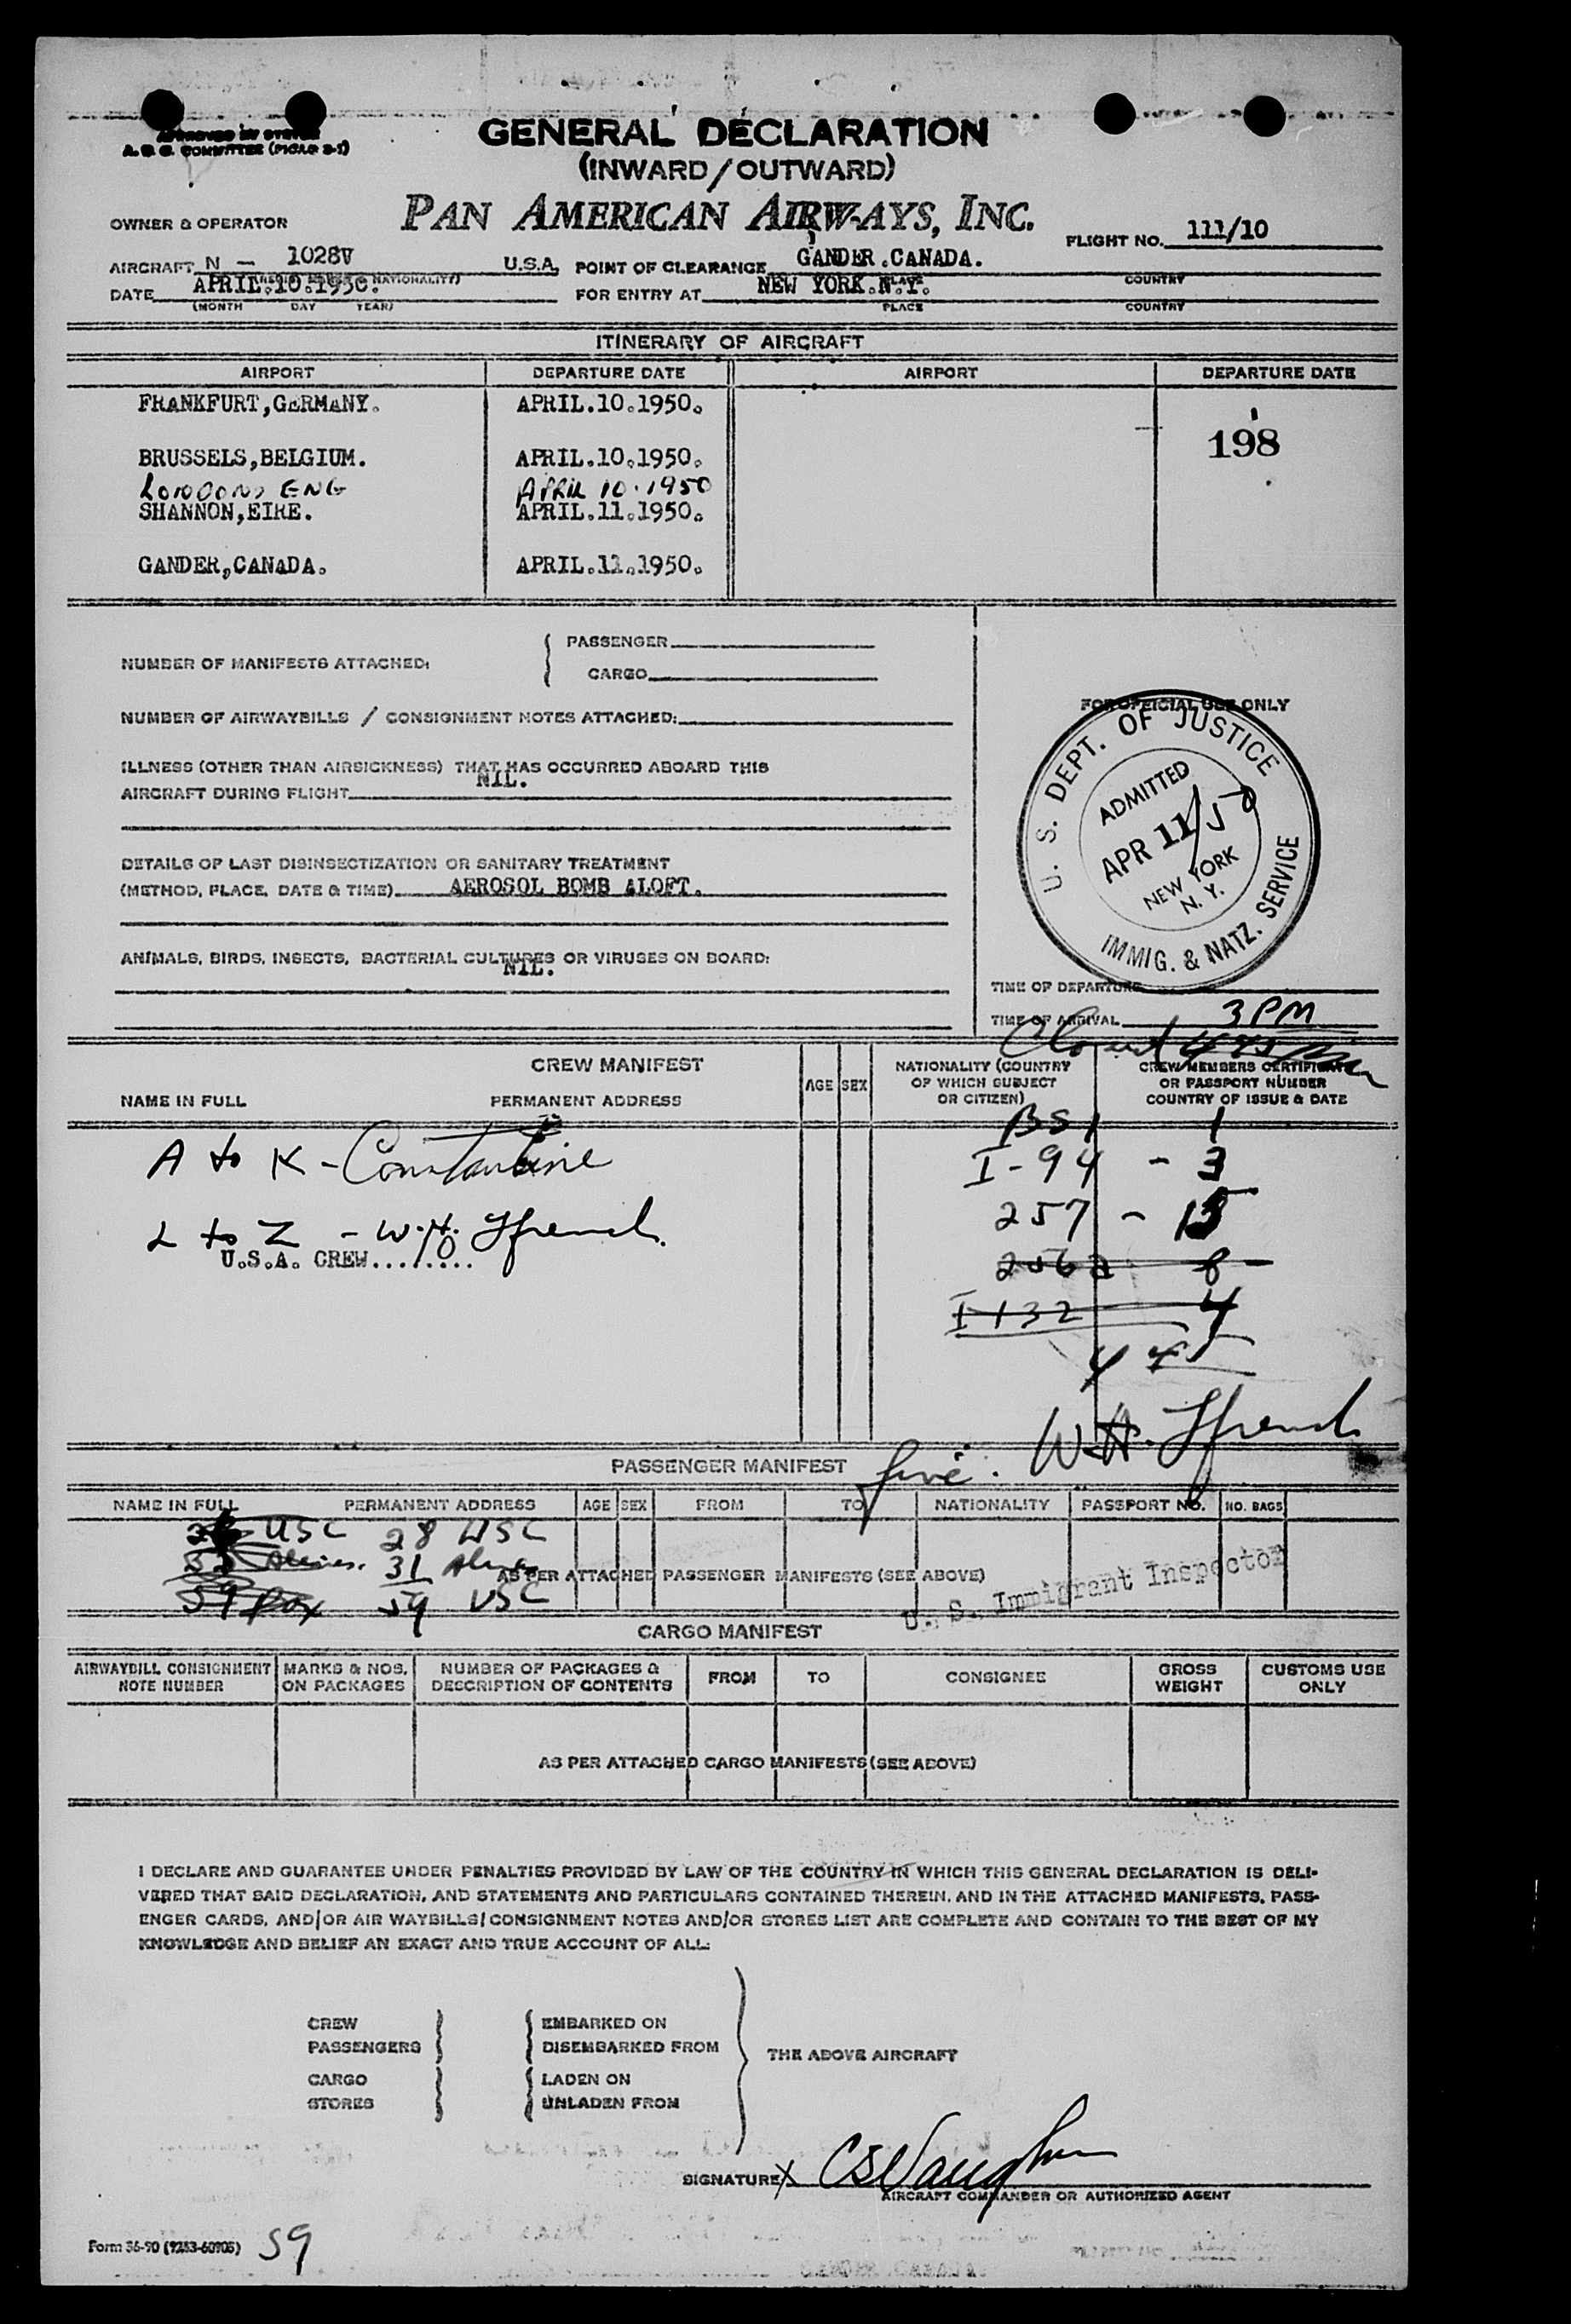 APPROVED BY
A. O. C. COMMITTEE (PICAO 2-1)
GENERAL DECLARATION
(INWARD/OUTWARD)
OWNER & OPERATOR PAN AMERICAN AIRWAYS, INC. FLIGHT NO. 111/10
AIRCRAFT N - 1028V U.S.A. POINT OF CLEARANCE GANDER.CANADA.
NATIONALITY) COUNTRY
DATE APRIL.10.1950. FOR ENTRY AT NEW YORK.N.Y.
(MONTH DAY YEAR) PLACE COUNTRY
ITINERARY OF AIRCRAFT
AIRPORT DEPARTURE DATE AIRPORT DEPARTURE DATE
FRANKFURT,GERMANY. APRIL.10.1950.
198
BRUSSELS,BELGIUM. APRIL.10.1950.
LONDON, ENG APRIL 10.1950
SHANNON,EIRE. APRIL.11.1950.
GANDER,CANADA. APRIL.11.1950.
NUMBER OF MANIFESTS ATTACHED: PASSENGER
CARGO
NUMBER OF AIRWAYBILLS / CONSIGNMENT NOTES ATTACHED:
FOR OFFICIAL USE ONLY
ILLNESS (OTHER THAN AIRSICKNESS) THAT HAS OCCURRED ABOARD THIS
AIRCRAFT DURING FLIGHT NIL.
DETAILS OF LAST DISINSECTIZATION OR SANITARY TREATMENT
(METHOD, PLACE, DATE & TIME) AEROSOL BOMB ALOFT.
ANIMALS, BIRDS, INSECTS, BACTERIAL CULTURES OR VIRUSES ON BOARD:
NIL.
U. S. DEPT. OF JUSTICE
ADMITTED
APR 11/50
NEW YORK
N. Y.
IMMIG. & NATZ. SERVICE
TIME OF DEPARTURE
TIME OF ARRIVAL 3 PM
CREW MANIFEST
NAME IN FULL PERMANENT ADDRESS AGE SEX NATIONALITY (COUNTRY OF WHICH SUBJECT OR CITIZEN) CREW MEMBERS CERTIFICATE OR PASSPORT NUMBER COUNTRY OF ISSUE & DATE
BSI 1
A to K - Constantine I-94 - 3
257 - 15
L to Z - W.H. Ffrench
U.S.A. CREW........
256a 8
I 132 4
W.H. Ffrench
PASSENGER MANIFEST
NAME IN FULL PERMANENT ADDRESS AGE SEX FROM TO NATIONALITY PASSPORT NO. NO. BAGS
USC 28 USC
Aliens 31 Aliens
AS PER ATTACHED PASSENGER MANIFESTS (SEE ABOVE)
59 Pax 59 USC
U. S. Immigrant Inspector
CARGO MANIFEST
AIRWAYBILL CONSIGNMENT NOTE NUMBER MARKS & NOS. ON PACKAGES NUMBER OF PACKAGES & DESCRIPTION OF CONTENTS FROM TO CONSIGNEE GROSS WEIGHT CUSTOMS USE ONLY
AS PER ATTACHED CARGO MANIFESTS (SEE ABOVE)
I DECLARE AND GUARANTEE UNDER PENALTIES PROVIDED BY LAW OF THE COUNTRY IN WHICH THIS GENERAL DECLARATION IS DELI-
VERED THAT SAID DECLARATION, AND STATEMENTS AND PARTICULARS CONTAINED THEREIN, AND IN THE ATTACHED MANIFESTS, PASS-
ENGER CARDS, AND/OR AIR WAYBILLS/CONSIGNMENT NOTES AND/OR STORES LIST ARE COMPLETE AND CONTAIN TO THE BEST OF MY
KNOWLEDGE AND BELIEF AN EXACT AND TRUE ACCOUNT OF ALL:
CREW EMBARKED ON
PASSENGERS DISEMBARKED FROM
THE ABOVE AIRCRAFT
CARGO LADEN ON
STORES UNLADEN FROM
SIGNATURE X CS Vaughn
AIRCRAFT COMMANDER OR AUTHORIZED AGENT
Form 36-90 (9253-60905) 59